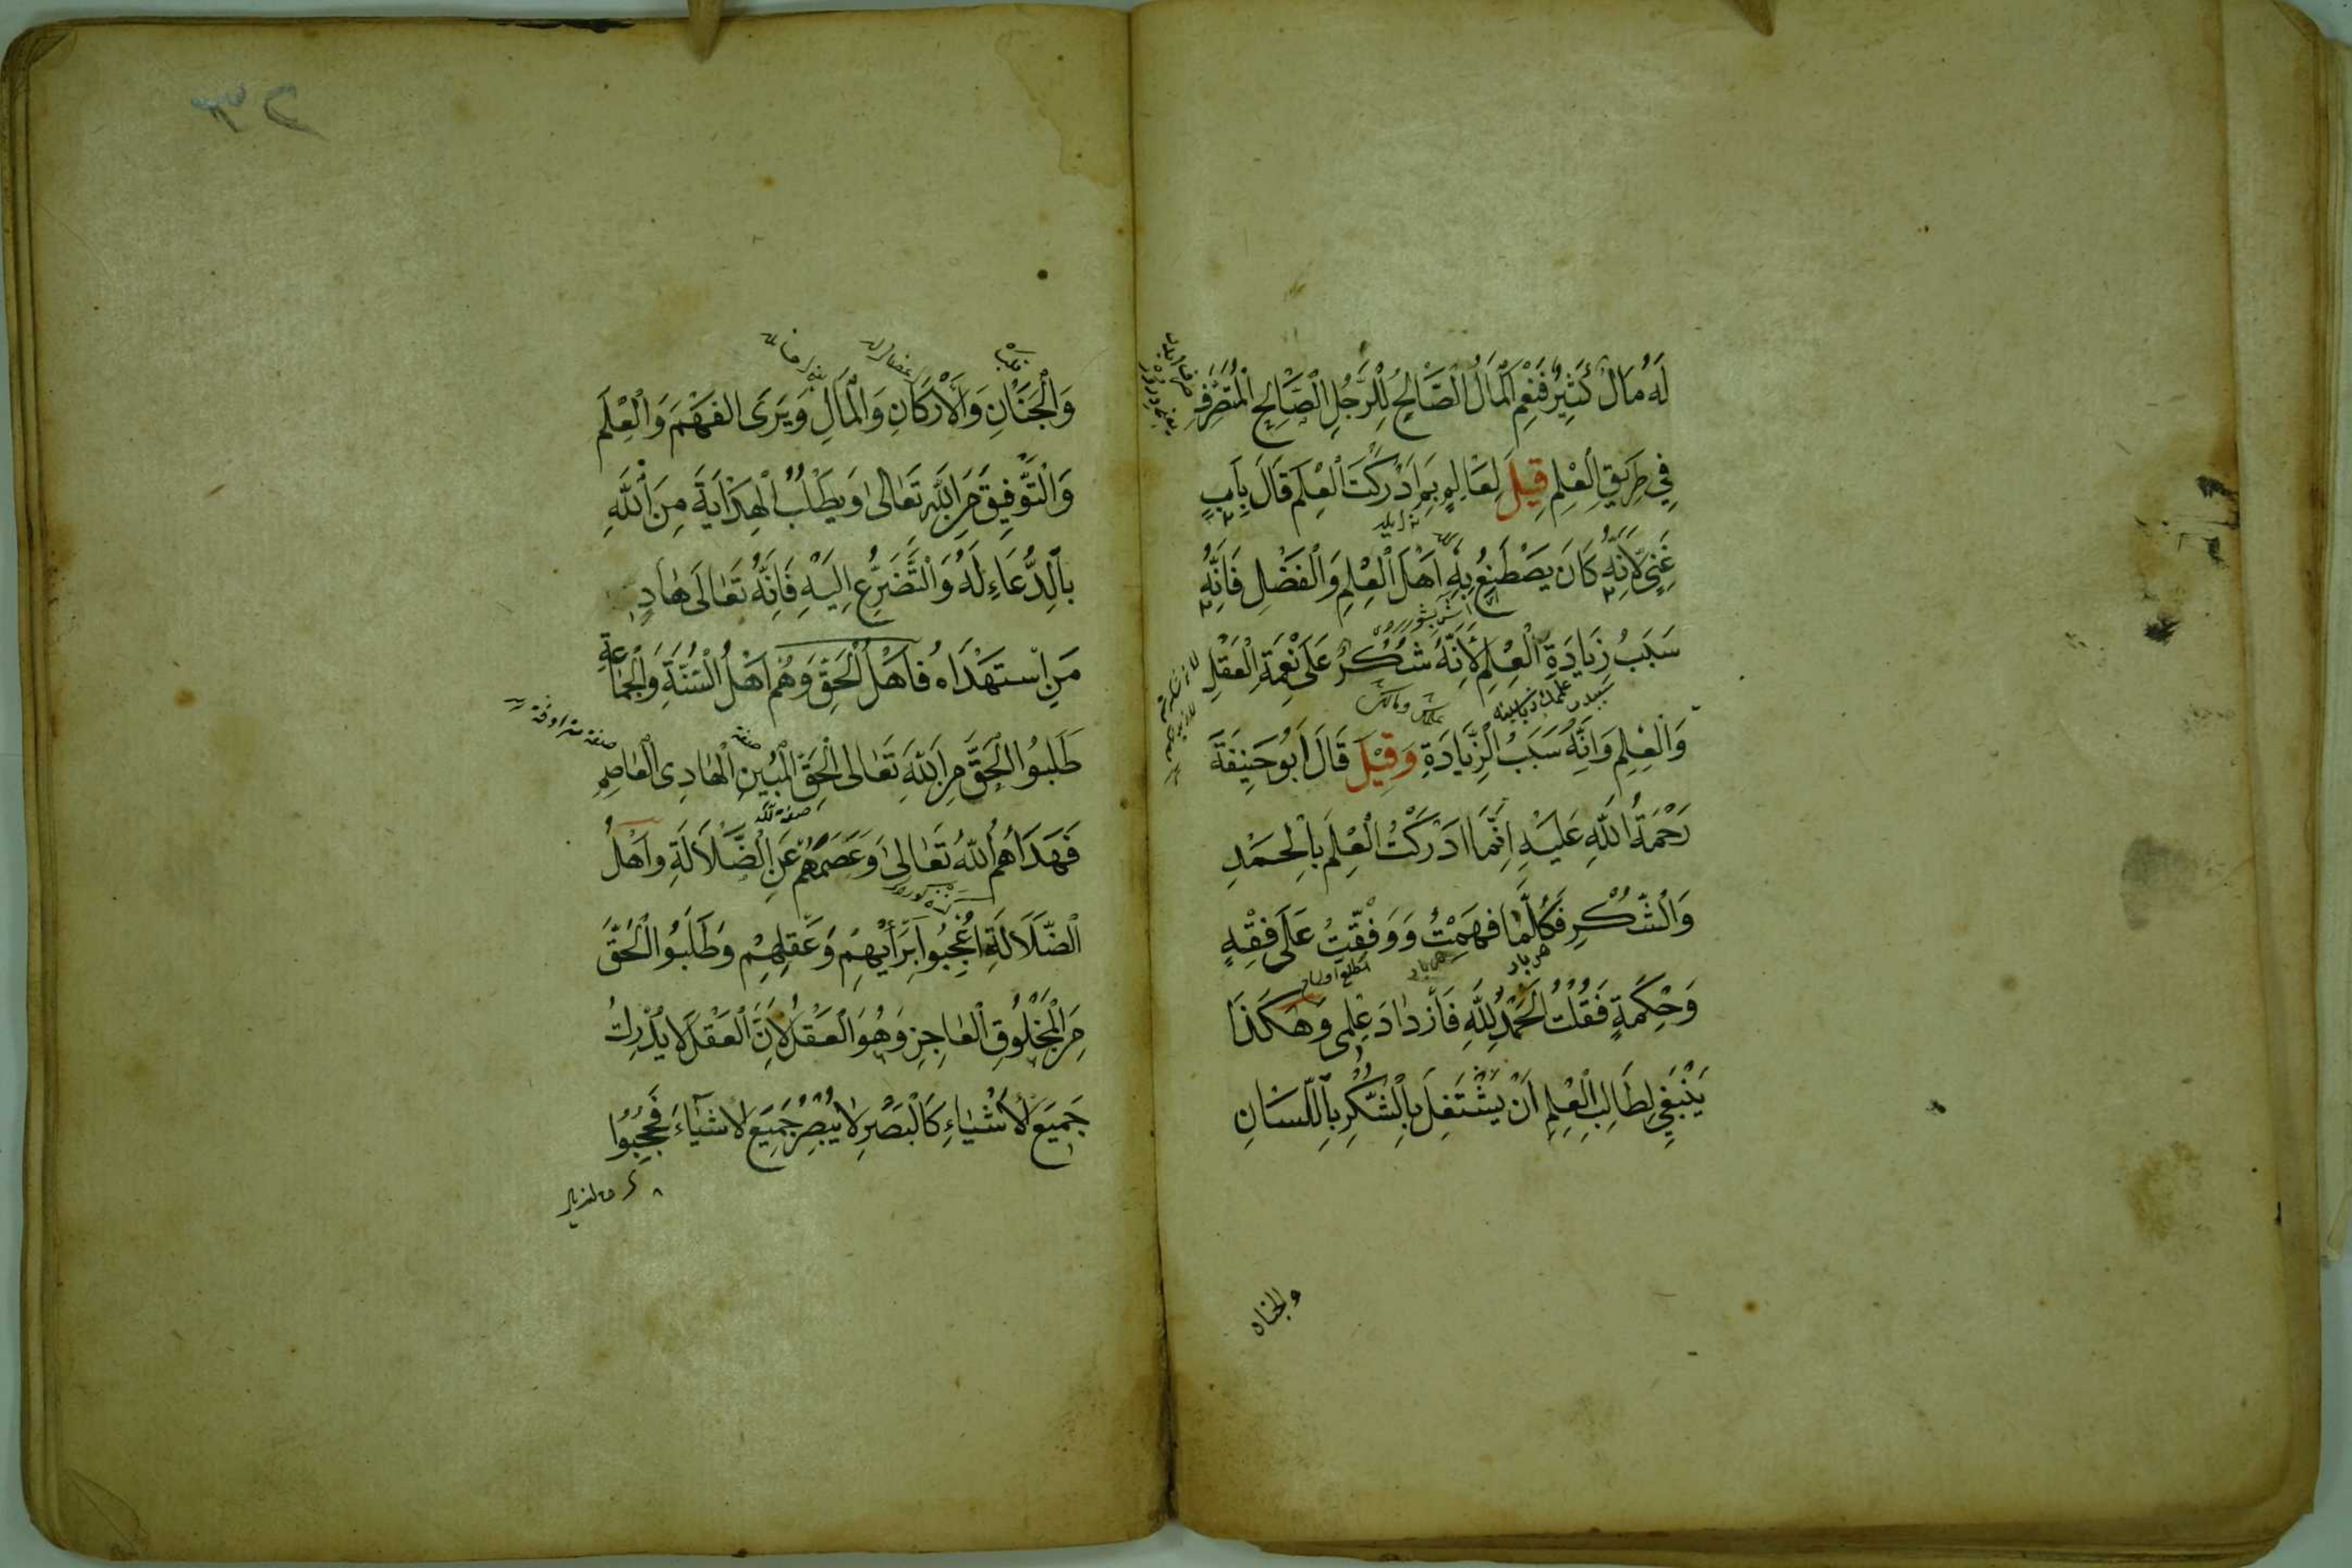 لَهُ مَالٌ كَثِيرٌ فَنِعْمَ الْمَالُ الصَّالِحُ لِلرَّجُلِ الصَّالِحِ الْمُتَصَرِّفِ
فِي طَرِيقِ الْعِلْمِ قِيلَ لِعَالِمٍ بِمَ اَدْرَكْتَ الْعِلْمَ قَالَ بِاَبٍ
غَنِيٍّ لِاَنَّهُ كَانَ يَصْطَنِعُ بِهِ اَهْلَ الْعِلْمِ وَالْفَضْلِ فَاِنَّهُ
سَبَبُ زِيَادَةِ الْعِلْمِ لِاَنَّهُ شُكْرٌ عَلَى نِعْمَةِ الْعَقْلِ
وَالْعِلْمِ وَاِنَّهُ سَبَبُ الزِّيَادَةِ وَقِيْلَ قَالَ اَبُو حَنِيفَةَ
رَحْمَةُ اللّٰهِ عَلَيْهِ اِنَّمَا اَدْرَكْتُ الْعِلْمَ بِالْحَمْدِ
وَالشُّكْرِ فَكُلَّمَا فَهِمْتُ وَوُفِّقْتُ عَلَى فِقْهٍ
وَحِكْمَةٍ فَقُلْتُ اَلْحَمْدُ لِلّٰهِ فَازْدَادَ عِلْمِى وَهٰكَذَا
يَنْبَغِي لِطَالِبِ الْعِلْمِ اَنْ يَشْتَغِلَ بِالشُّكْرِ بِاللِّسَانِ
والجنان
وَالْجَنَانِ وَالْاَرْكَانِ وَالْمَالِ وَيَرَى الْفَهْمَ وَالْعِلْمَ
وَالتَّوْفِيقَ مِنَ اللّٰهِ تَعَالٰى وَيَطْلُبُ الْهِدَايَةَ مِنَ اللّٰهِ
بِالدُّعَاءِ لَهُ وَالتَّضَرُّعِ اِلَيْهِ فَاِنَّهُ تَعَالَى هَادٍ
مَنِ اسْتَهْدَاهُ فَاَهْلُ الْحَقِّ وَهُمْ اَهْلُ السُّنَّةِ وَالْجَمَاعَةِ
طَلَبُوا الْحَقَّ مِنَ اللّٰهِ تَعَالٰى الْحَقِّ الْمُبِينِ الْهَادِى الْعَاصِمِ
فَهَدَاهُمُ اللّٰهُ تَعَالٰى وَعَصَمَهُمْ عَنِ الضَّلَالَةِ وَاَهْلُ
الضَّلَالَةِ اُعْجِبُوا بِرَأْيِهِمْ وَعَقْلِهِمْ وَطَلَبُوا الْحَقَّ
مِنَ الْمَخْلُوقِ الْعَاجِزِ وَهُوَ الْعَقْلُ لِاَنَّ الْعَقْلَ لَا يُدْرِكُ
جَمِيعَ الْاَشْيَاءِ كَالْبَصَرِ لَا يُبْصِرُ جَمِيعَ الْاَشْيَاءِ فَحُجِبُوا